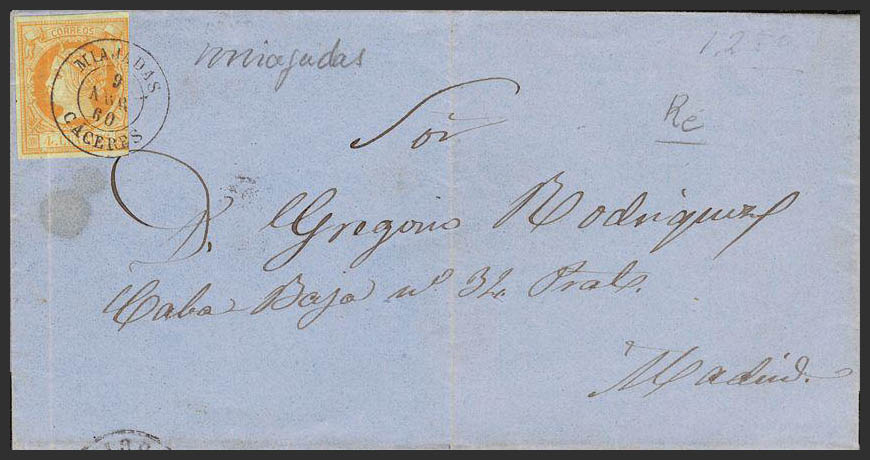 CORREOS
MIAJADAS
9
ABR
60
CACERES
miajadas
Ré
Sōr
D. Gregorio Rodriguez
Caba Baja nº 32. Pral.
Madrid.